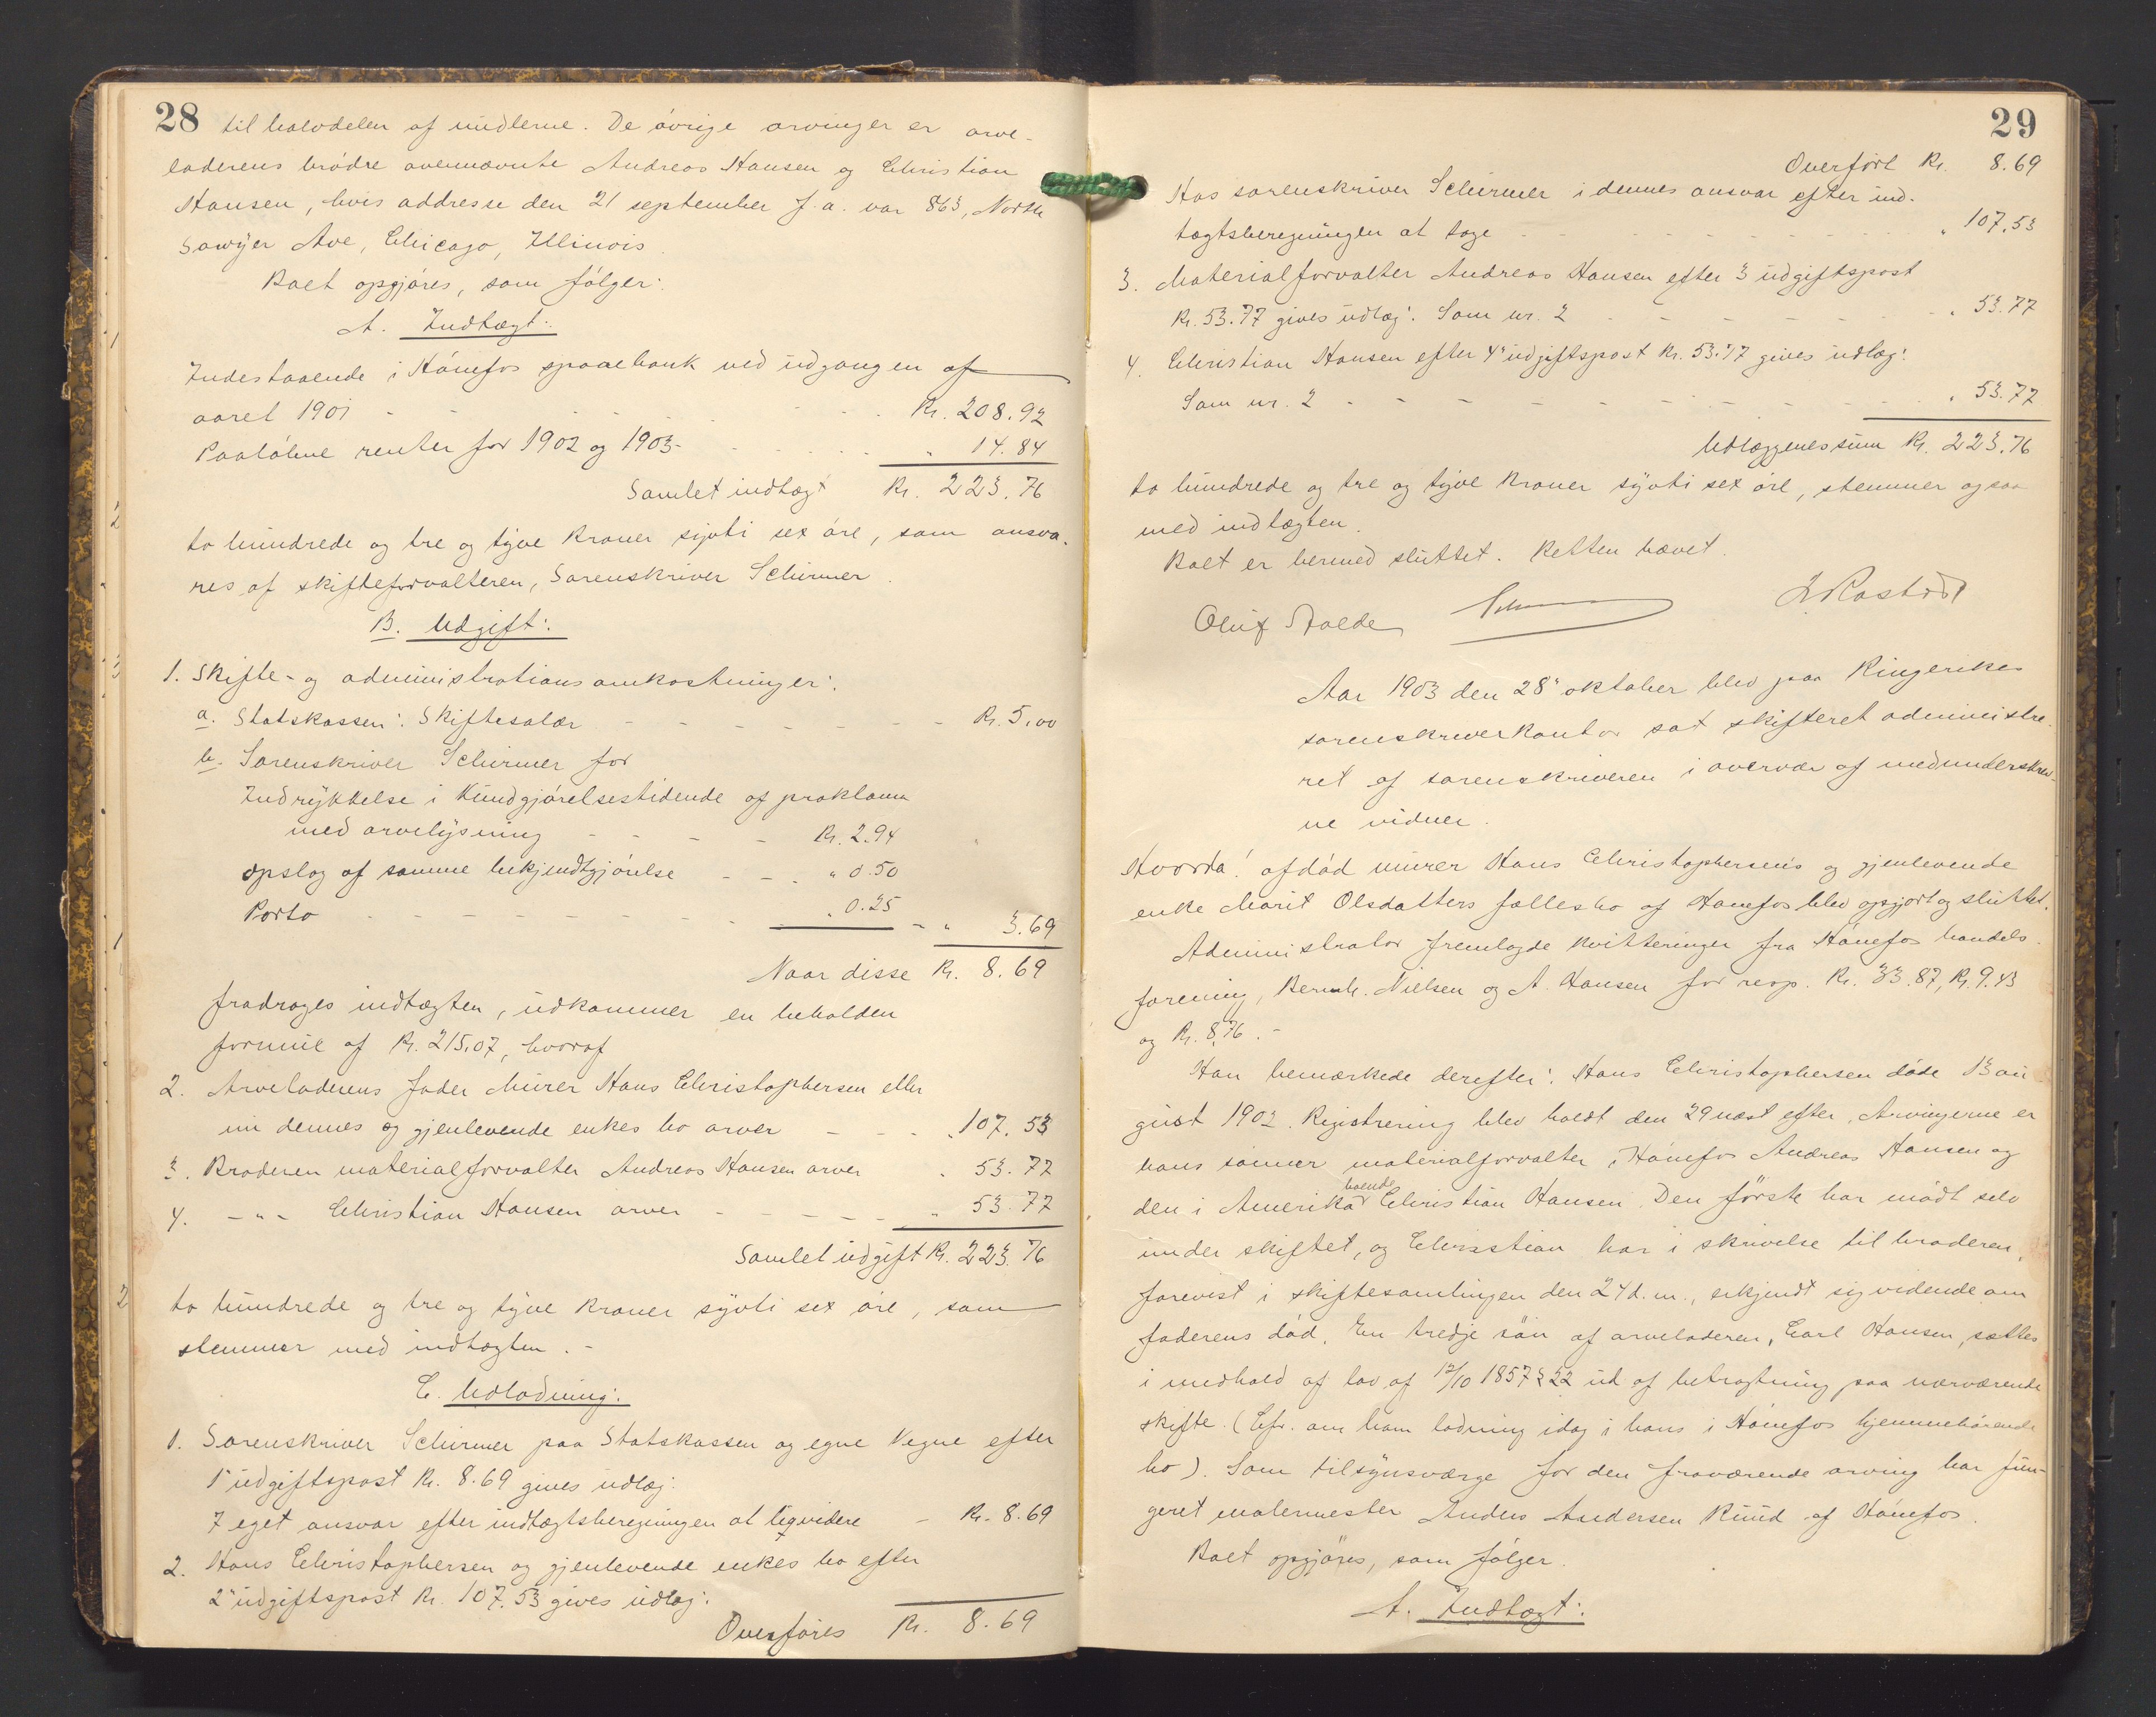 28
til halvdelen af midlerne. De øvrige arvinger er arve-
laderens brødre ovennævnte Andreas Hansen og Christian
Hansen, hvis addresse den 21 september f. a. var 863, North
Sawyer Ave, Chicago, Illinois.
Boet opgjøres, som følger:
A. Indtægt:
Indestaaende i Hönefos sparebank ved udgangen af
aaret 1901 - - - - Kr. 208.92
Paaløbne renter for 1902 og 1903 - - - - " 14.84
Samlet indtægt Kr. 223.76
to hundrede og tre og tyve kroner sytti sex øre, som ansva-
res af skifteforvalteren, Sorenskriver Schirmer.
B. Udgift:
1. Skifte- og administrationsomkostninger:
a. Statskassen: Skiftesalær - - - - Kr. 5,00
b. Sorenskriver Schirmer for
Indrykkelse i Kundgjørelsestidende af proklama
med arvelysning - - - - Kr. 2.94
Opslag af samme bekjendtgjørelse - - - " 0.50
Porto - - - - " 0.25
- " 3.69
Naar disse Kr. 8.69
fradrages indtægten, udkommer en beholden
formue af Kr. 215.07, hvoraf
2. Arveladerens fader Murer Hans Christophersen eller
nu dennes og gjenlevende enkes bo arver - - - " 107.53
3. Broderen materialforvalter Andreas Hansen arver " 53.77
4. - " - Christian Hansen arver - - - - " 53.77
Samlet udgift Kr. 223.76
to hundrede og tre og tyve kroner sytti sex øre, som
stemmer med indtægten. -
C. Udlodning:
1. Sorenskriver Schirmer paa Statskassen og egne Vegne efter
1" udgiftspost Kr. 8.69 gives udlæg:
I eget ansvar efter indtægtsberegningen at liqvidere - Kr. 8.69
2. Hans Christophersen og gjenlevende enkes bo efter
2" udgiftspost Kr. 107.53 gives udlæg:
Overføres Kr. 8.69
29
Overført Kr. 8.69
Hos sorenskriver Schirmer i dennes ansvar efter ind-
tægtsberegningen at tage - - - - " 107.53
3. Materialforvalter Andreas Hansen efter 3 udgiftspost
Kr. 53.77 gives udlæg: Som nr. 2 - - - - " 53.77
4. Christian Hansen efter 4" udgiftspost Kr. 53.77 gives udlæg:
Som nr. 2 - - - - " 53.77
Udlæggenes sum Kr. 223.76
to hundrede og tre og tyve kroner sytti sex øre, stemmer ogsaa
med indtægten.
Boet er hermed sluttet. Retten hævet.
Oluf
Aar 1903 den 28" oktober blev paa Ringerikes
sorenskriverkontor sat skifteret administre-
ret af sorenskriveren i overvær af medunderskrev-
ne vidner.
Hvorda: afdød murer Hans Christophersens og gjenlevende
enke Marit Olsdatters fællesbo af Hønefos blev opgjort og sluttet.
Administrator fremlagde kvitteringer fra Hønefos handels-
forening, Bernh. Nielsen og A. Hansen for resp. Kr. 33.87, Kr. 9.43
og Kr. 8,76. -
Han bemærkede derefter: Hans Christophersen døde 13 au-
gust 1902. Registrering blev holdt den 29 næst efter. Arvingerne er
hans sønner materialforvalter i Hønefos Andreas Hansen og
den i Amerika boende Christian Hansen. Den første har mødt selv
under skiftet, og Chrisstian har i skrivelse til broderen,
forevist i skiftesamlingen den 24 d. m., erkjendt sig vidende om
faderens død. En tredje søn af arveladeren, Carl Hansen, sættes
i medhold af lov af 12/10 1857 § 22 ud af betragtning paa nærværende
skifte. (Cfr. om ham lodning idag i hans i Hønefos hjemmehørende
bo). Som tilsynsværge for den fraværende arving har fun-
geret malermester Anders Andersen Ruud af Hønefos.
Boet opgjøres, som følger.
A. Indtægt: